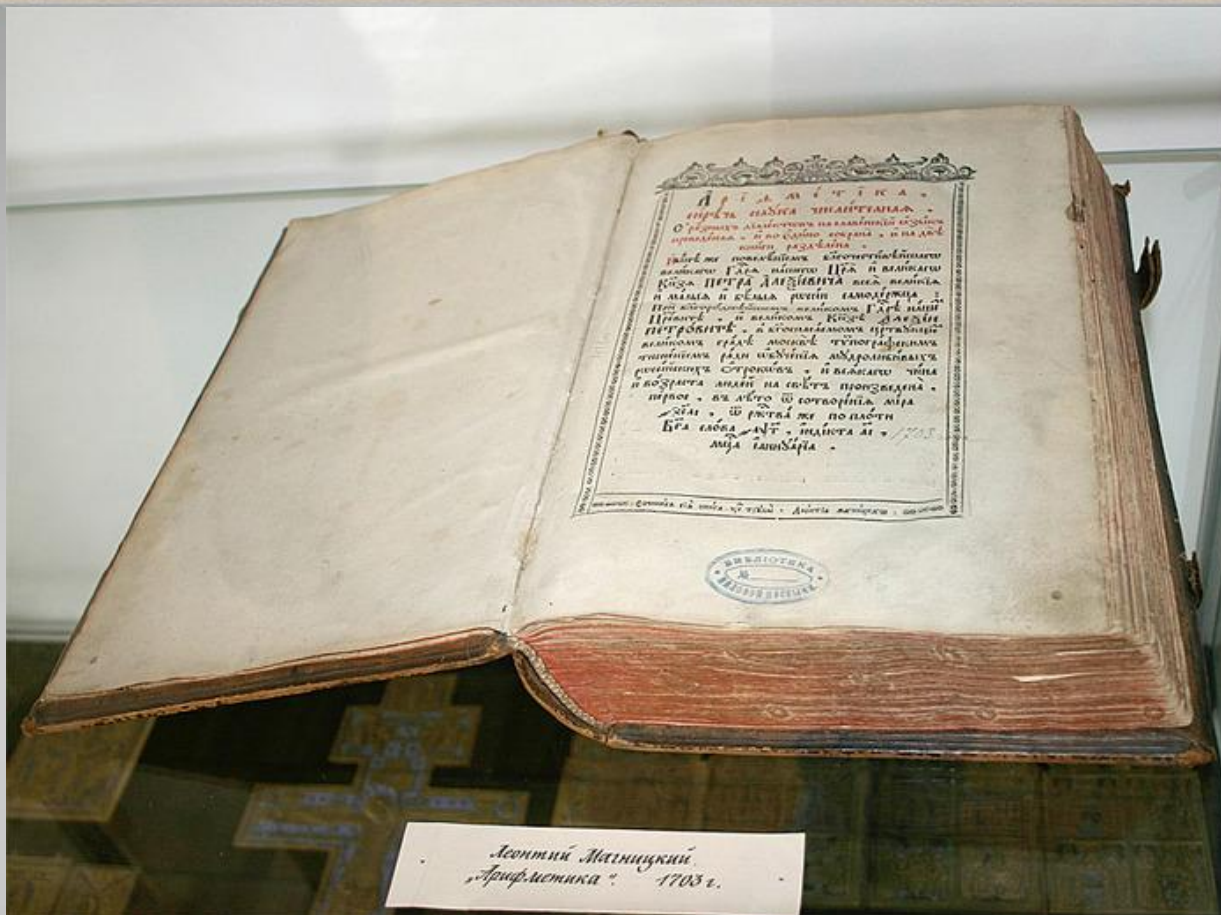 Арїѳметїка ,
сирѣчь наука числителная .
Ѿ разныхъ дїалектовъ на славенскїй ѧзыкъ
преведеная , и во едино собрана , и на двѣ
книги раздѣлена .
же повелѣнїемъ благочестивѣйшагѡ
великагѡ Гдр҃ѧ нашегѡ Цр҃ѧ и великагѡ
Кн҃зѧ ПЕТРА АЛЕѮІЕВИЧА всеѧ великїѧ
и малыѧ и бѣлыѧ рѡссїи самодержца :
При великомъ Гдр҃ѣ нашемъ
и великомъ Кн҃зѣ Алеѯїи
ПЕТРОВИЧѢ , в бг҃оспасаемомъ
великомъ градѣ москвѣ тѵпографскимъ
тисненїемъ ради ѡбученїѧ мудролюбивыхъ
рѡссїйскихъ Отрокѡвъ , и всѧкагѡ чина
и возраста людей на свѣтъ произведена ,
первое , въ лѣто ѿ сотворенїѧ мїра
҂зсаі , ѿ рж҃тва же по плоти
Бг҃а слова ҂аѱг , індікта аі , 1703
мц҃а їаннуарїа .
Сочинисѧ сїѧ книга
БИБЛІОТЕКА
№
Леонтий Магницкий
„Арифметика". 1703 г.